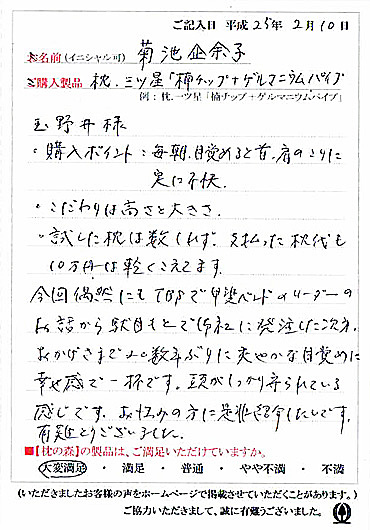 ご記入日 平成25年 2月10日
お名前(イニシャル可) 菊池企余子
ご購入製品 枕.三ツ星「楠チップ+ゲルマニウムパイプ
例:枕.一ツ星「楠チップ+ゲルマニウムパイプ」
玉野井様
・購入ポイント:毎朝.目覚めると首.肩のこりに
実に不快.
・こだわりは高さと大きさ.
・試した枕は数しれず.支払った枕代も
10万円は軽くこえてます.
今回偶然にもTBSで甲斐バンドのリーダーの
お話から駄目もとで御社に発注した次第.
おかげさまで20数年ぶりに爽やかな目覚めに
幸せ感で一杯です。頭がしっかり守られている
感じです。お悩みの方に是非紹介したいです.
有難とうございました.
■【枕の森】の製品は、ご満足いただけていますか。
大変満足 ・ 満足 ・ 普通 ・ やや不満 ・ 不満
(いただきましたお客様の声をホームページで掲載させていただくことがあります。)
ご協力いただきまして、誠に有難うございました。